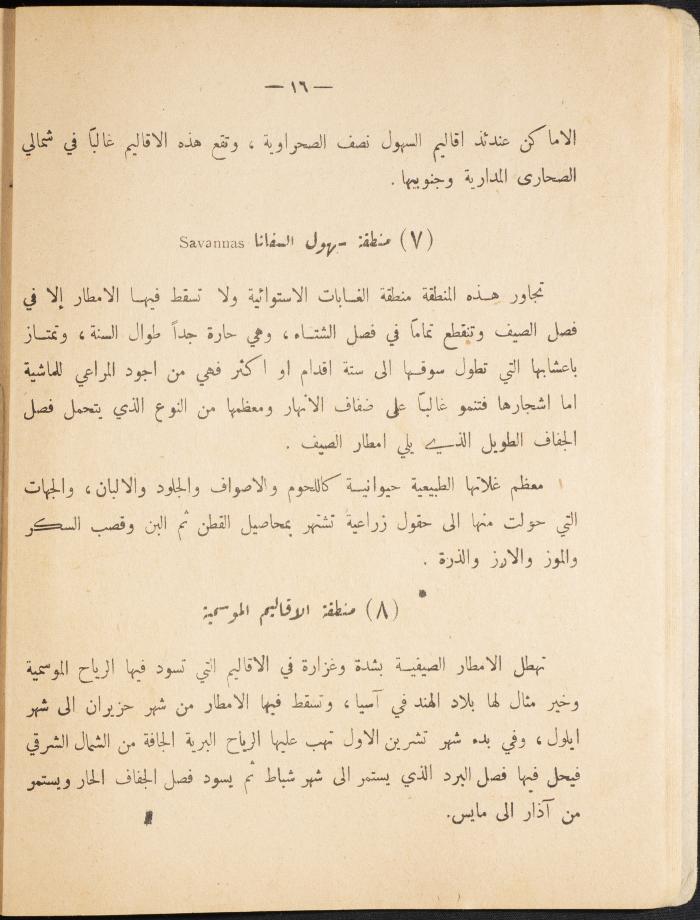 — ١٦ —
الاماكن عندئذ اقاليم السهول نصف الصحراوية ، وتقع هذه الاقاليم غالباً في شمالي
الصحارى المدارية وجنوبيها .
(٧) منطقة سهول السفانا Savannas
تجاور هـذه المنطقة منطقة الغـابات الاستوائية ولا تسقط فيهـا الامطار إلا في
فصل الصيف وتنقطع تماماً في فصل الشتـاء ، وهي حارة جداً طوال السنة ، وتمتـاز
باعشابها التي تطول سوقـها الى ستة اقدام او اكثر فهي من اجود المراعي للماشية
اما اشجارها فتنمو غالبـاً على ضفاف الانهار ومعظمها من النوع الذي يتحمل فصل
الجفاف الطويل الذي يلي امطار الصيف .
معظم غلاتها الطبيعية حيوانيـة كاللحوم والاصواف والجلود والالبان ، والجهات
التي حولت منها الى حقول زراعية تشتهر بمحاصيل القطن ثم البن وقصب السكر
والموز والارز والذرة .
(٨) منطقة الاقاليم الموسمية
تهطل الامطار الصيفيـة بشدة وغزارة في الاقاليم التي تسود فيها الرياح الموسمية
وخير مثال لها بلاد الهند في آسيا ، وتسقط فيها الامطار من شهر حزيران الى شهر
ايلول ، وفي بدء شهر تشرين الاول تهب عليها الرياح البرية الجافة من الشمال الشرقي
فيحل فيها فصل البرد الذي يستمر الى شهر شباط ثم يسود فصل الجفاف الحار ويستمر
من آذار الى مايس.